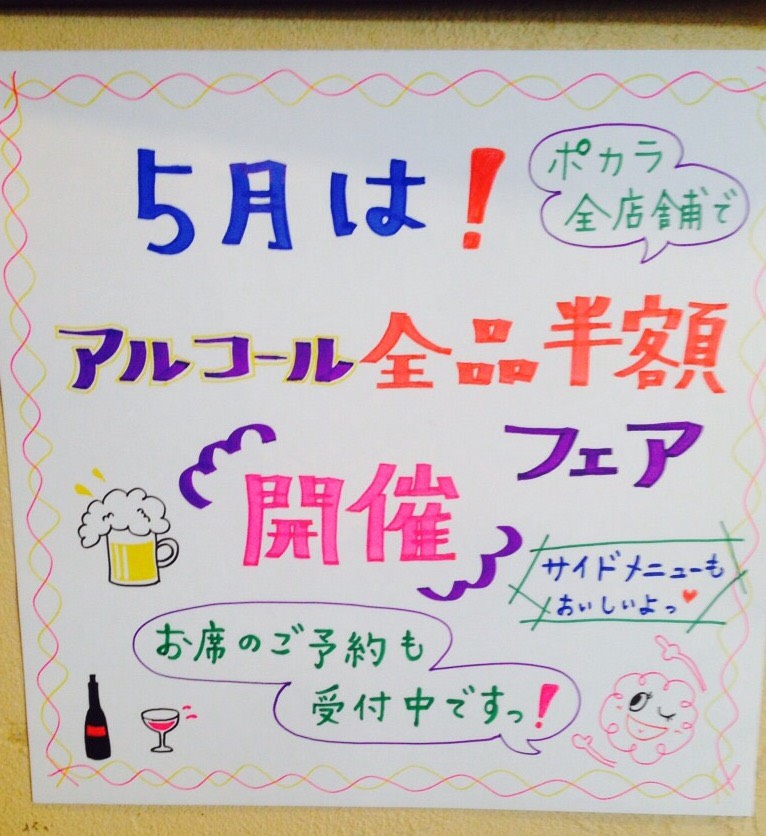 5月は!
ポカラ
全店舗で
アルコール全品半額
フェア
開催
サイドメニューも
おいしいよっ♥
お席のご予約も
受付中ですっ!